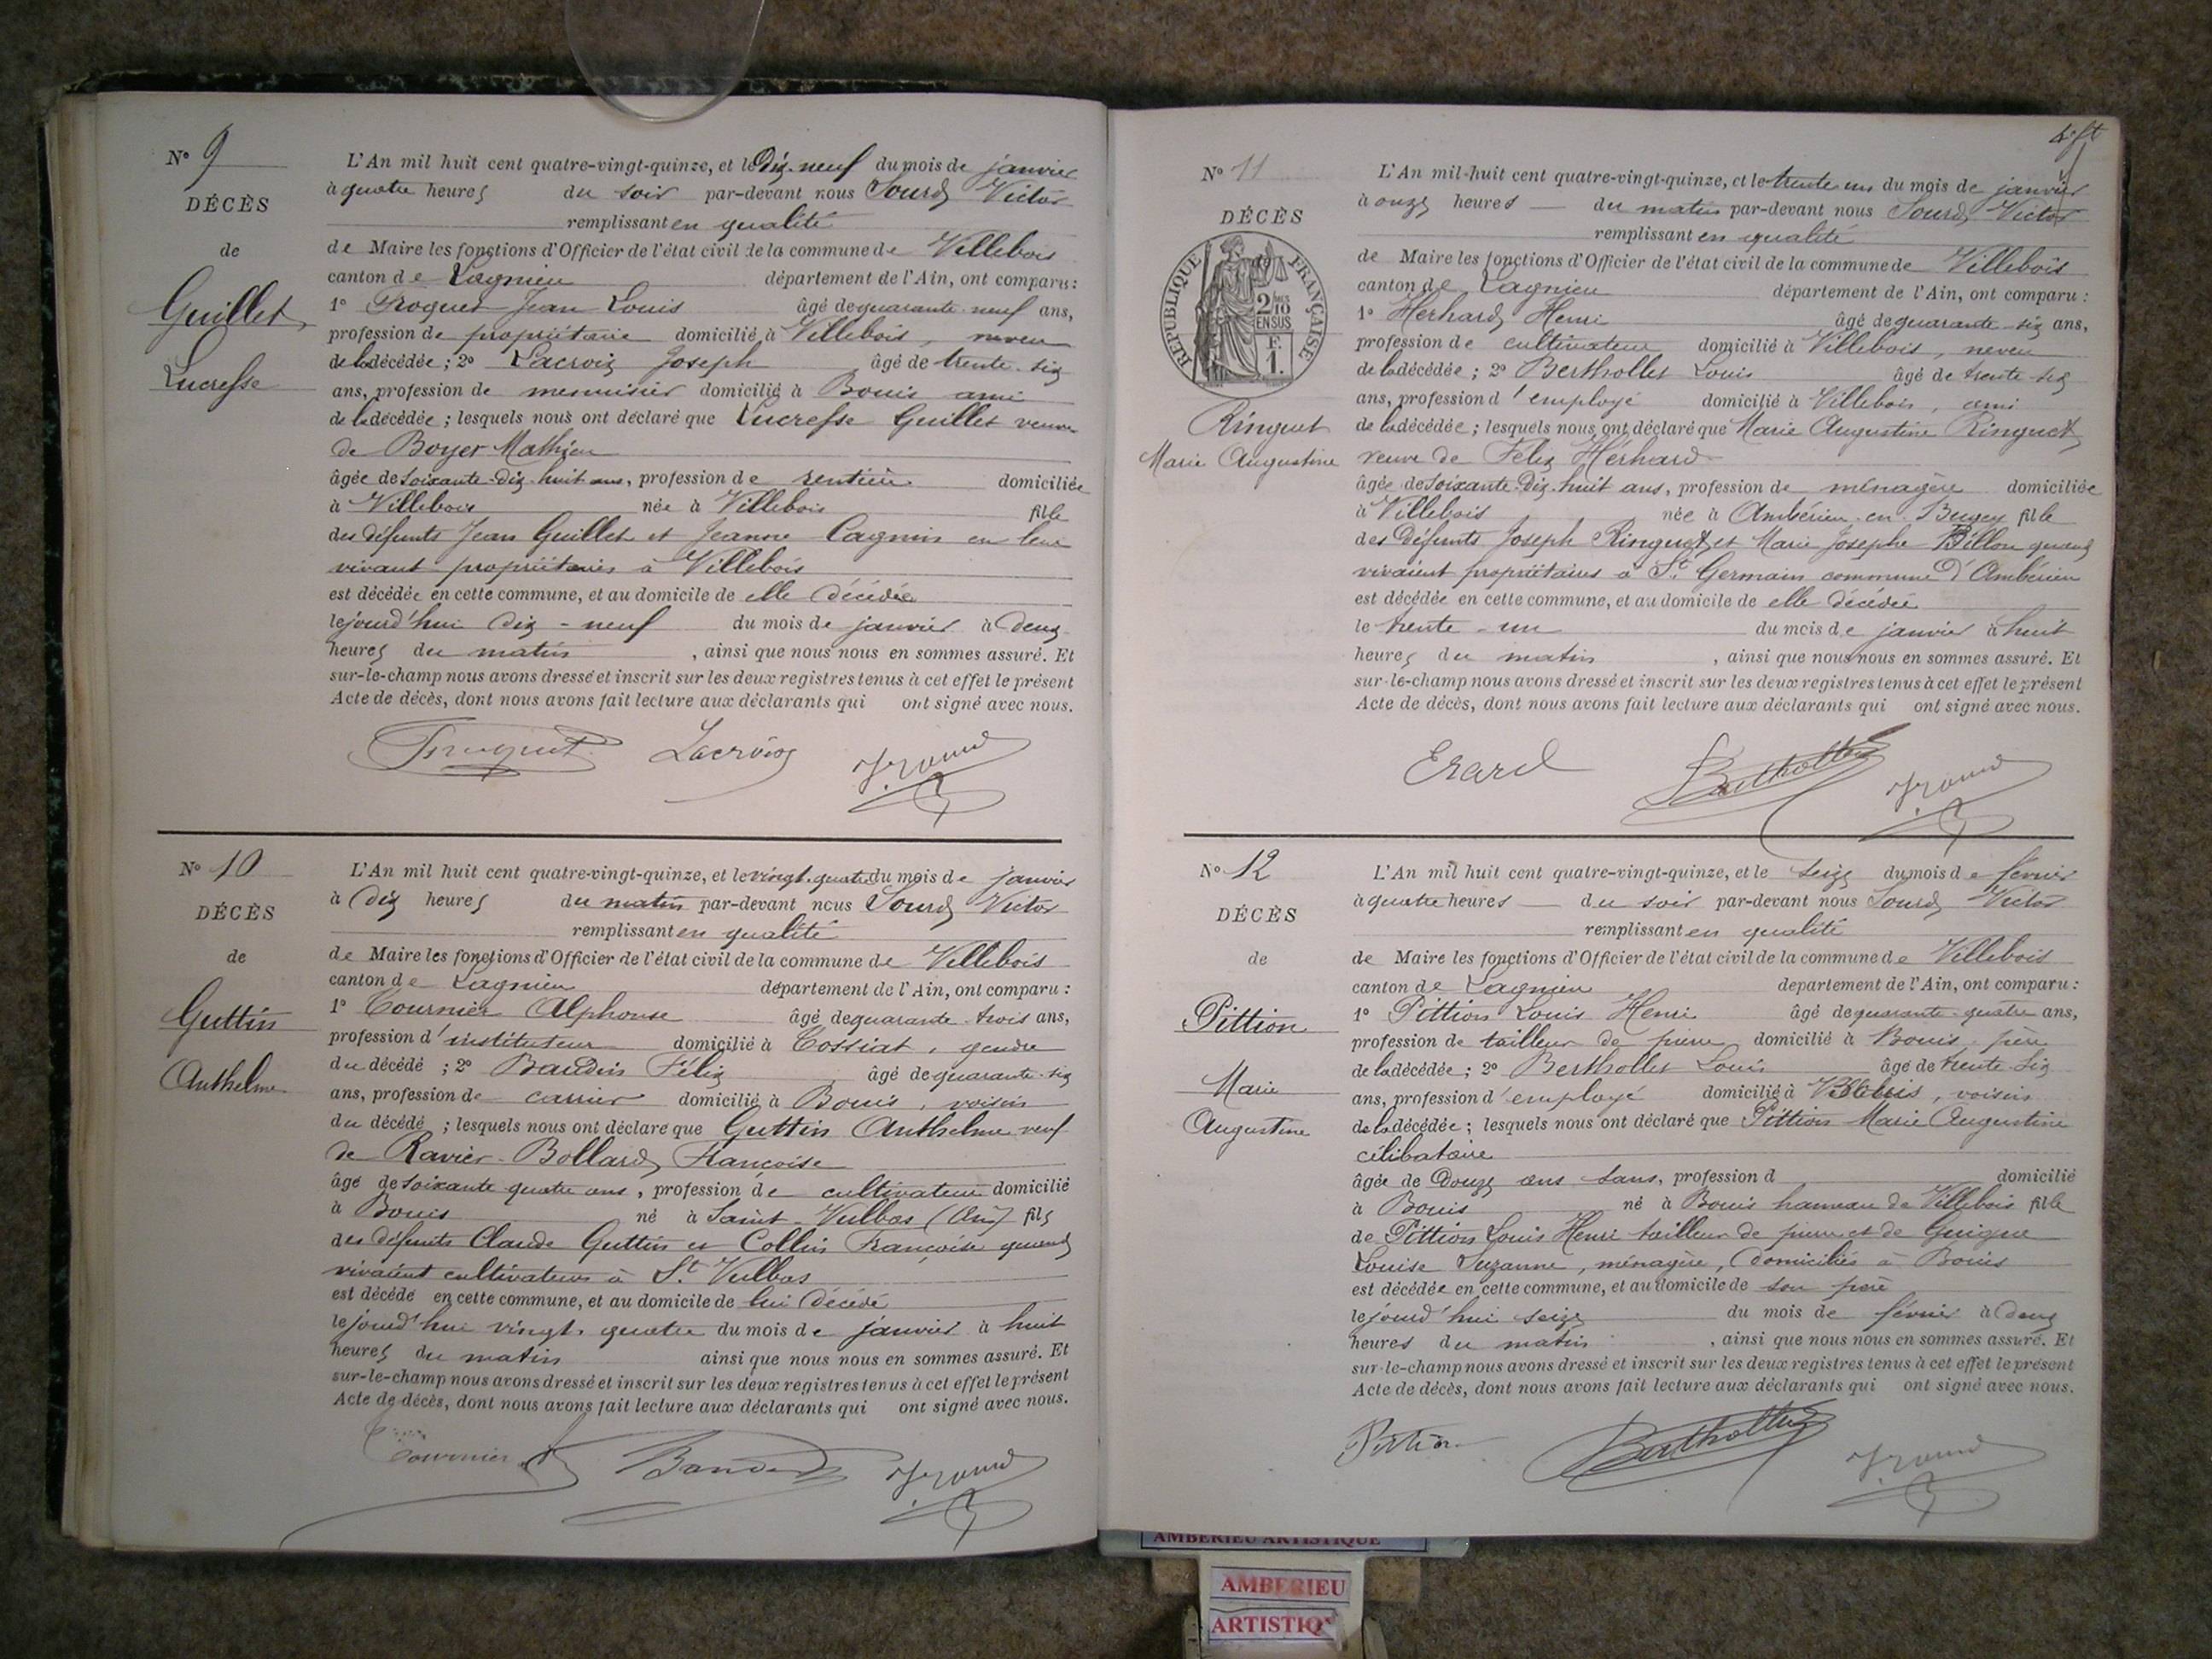 N° 9
DÉCÈS
de
Guillet
Lucresse
L'An mil huit cent quatre-vingt-quinze, et le Dix-neuf du mois de janvier
à quatre heures du soir par-devant nous Sourd Victor
remplissant en qualité
de Maire les fonctions d'Officier de l'état civil de la commune de Villebois
canton de Lagnieu département de l'Ain, ont comparu :
1° Troquet Jean Louis âgé de quarante-neuf ans,
profession de propriétaire domicilié à Villebois, neveu
de la décédée ; 2° Lacroix Joseph âgé de trente-six
ans, profession de menuisier domicilié à Bouis ami
de la décédée ; lesquels nous ont déclaré que Lucresse Guillet veuve
de Boyer Mathieu
âgée de soixante-dix-huit ans, profession de rentière domiciliée
à Villebois née à Villebois fille
des défunts Jean Guillet et Jeanne Cagnin en leur
vivant propriétaires à Villebois
est décédée en cette commune, et au domicile de elle décédée
le jourd'hui dix-neuf du mois de janvier à deux
heures du matin , ainsi que nous nous en sommes assuré. Et
sur-le-champ nous avons dressé et inscrit sur les deux registres tenus à cet effet le présent
Acte de décès, dont nous avons fait lecture aux déclarants qui ont signé avec nous.
Troquet Lacroix
N° 10
DÉCÈS
de
Guttin
Anthelme
L'An mil huit cent quatre-vingt-quinze, et le vingt-quatre du mois de janvier
à dix heures du matin par-devant nous Sourd Victor
remplissant en qualité
de Maire les fonctions d'Officier de l'état civil de la commune de Villebois
canton de Lagnieu département de l'Ain, ont comparu :
1° Tournier Alphonse âgé de quarante-trois ans,
profession d'instituteur domicilié à Tossiat, gendre
du décédé ; 2° Baudin Félix âgé de quarante-six
ans, profession de carrier domicilié à Bouis, voisin
du décédé ; lesquels nous ont déclaré que Guttin Anthelme veuf
de Ravier-Bollard Françoise
âgé de soixante-quatre ans, profession de cultivateur domicilié
à Bouis né à Saint-Vulbas (Ain) fils
des défunts Claude Guttin et Collin Françoise quand
vivaient cultivateurs à St. Vulbas
est décédé en cette commune, et au domicile de lui décédé
le jourd'hui vingt-quatre du mois de janvier à huit
heures du matin ainsi que nous nous en sommes assuré. Et
sur-le-champ nous avons dressé et inscrit sur les deux registres tenus à cet effet le présent
Acte de décès, dont nous avons fait lecture aux déclarants qui ont signé avec nous.
Tournier
N° 11
DÉCÈS
RÉPUBLIQUE FRANÇAISE
2/10 EN SUS
F. 1.
Ringuet
Marie Augustine
L'An mil huit cent quatre-vingt-quinze, et le trente un du mois de janvier
à onze heures du matin par-devant nous Sourd Victor
remplissant en qualité
de Maire les fonctions d'Officier de l'état civil de la commune de Villebois
canton de Lagnieu département de l'Ain, ont comparu :
1° Herhard Henri âgé de quarante-six ans,
profession de cultivateur domicilié à Villebois, neveu
de la décédée ; 2° Berthollet Louis âgé de trente-six
ans, profession d'employé domicilié à Villebois, ami
de la décédée ; lesquels nous ont déclaré que Marie Augustine Ringuet
veuve de Félix Hérhard
âgée de soixante-dix-huit ans, profession de ménagère domiciliée
à Villebois née à Ambérieu-en-Bugey fille
des défunts Joseph Ringuet et Marie Josephe Billon quand
vivaient propriétaires à St. Germain commune d'Ambérieu
est décédée en cette commune, et au domicile de elle décédée
le trente-un du mois de janvier à huit
heures du matin , ainsi que nous nous en sommes assuré. Et
sur-le-champ nous avons dressé et inscrit sur les deux registres tenus à cet effet le présent
Acte de décès, dont nous avons fait lecture aux déclarants qui ont signé avec nous.
Erard Berthollet
N° 12
DÉCÈS
de
Pittion
Marie
Augustine
L'An mil huit cent quatre-vingt-quinze, et le seize du mois de février
à quatre heures du soir par-devant nous Sourd Victor
remplissant en qualité
de Maire les fonctions d'Officier de l'état civil de la commune de Villebois
canton de Lagnieu département de l'Ain, ont comparu :
1° Pittion Louis Henri âgé de quarante-quatre ans,
profession de tailleur de pierre domicilié à Bouis, père
de la décédée ; 2° Berthollet Louis âgé de trente-six
ans, profession d'employé domicilié à Villebois, voisin
de la décédée ; lesquels nous ont déclaré que Pittion Marie Augustine
célibataire
âgée de douze ans sans, profession d domicilié
à Bouis né à Bouis hameau de Villebois fille
de Pittion Louis Henri tailleur de pierre et de Guigue
Louise Suzanne, ménagère, domiciliés à Bouis
est décédée en cette commune, et au domicile de son père
le jourd'hui seize du mois de février à deux
heures du matin , ainsi que nous nous en sommes assuré. Et
sur-le-champ nous avons dressé et inscrit sur les deux registres tenus à cet effet le présent
Acte de décès, dont nous avons fait lecture aux déclarants qui ont signé avec nous.
Pittion Berthollet
AMBERIEU ARTISTIQUE
AMBERIEU
ARTISTIQ